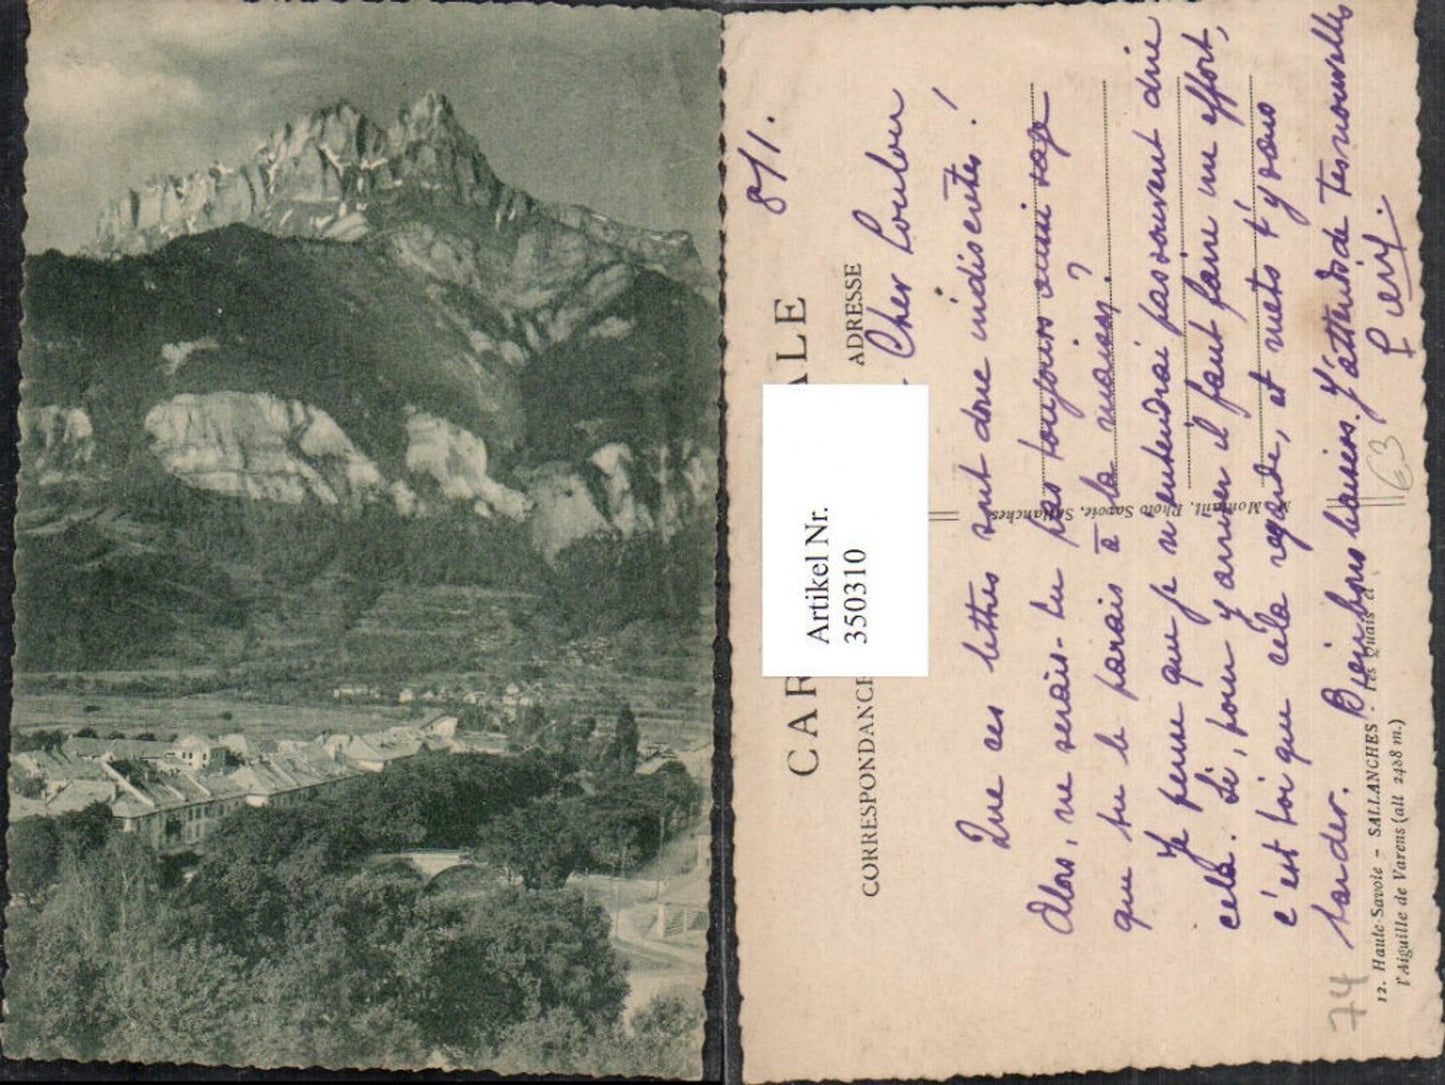 8/1.
CARTE POSTALE
CORRESPONDANCE
ADRESSE
Artikel Nr.
350310
Cher Loulou
Que ces lettres sont donc indiscrètes !
Alors, ne serais-tu pas toujours aussi sage
que tu le parais à la maison ?
Je pense que je n'entendrai pas souvent dire
cela. Si, pour y arriver il faut faire un effort,
c'est toi que cela regarde, et mets t'y sans
tarder. Bien bons baisers. J'attends de tes nouvelles
Photo Savoie, Sallanches
63
74
12. Haute-Savoie - SALLANCHES - Les Quais et
l'Aiguille de Varens (alt 2488 m.)